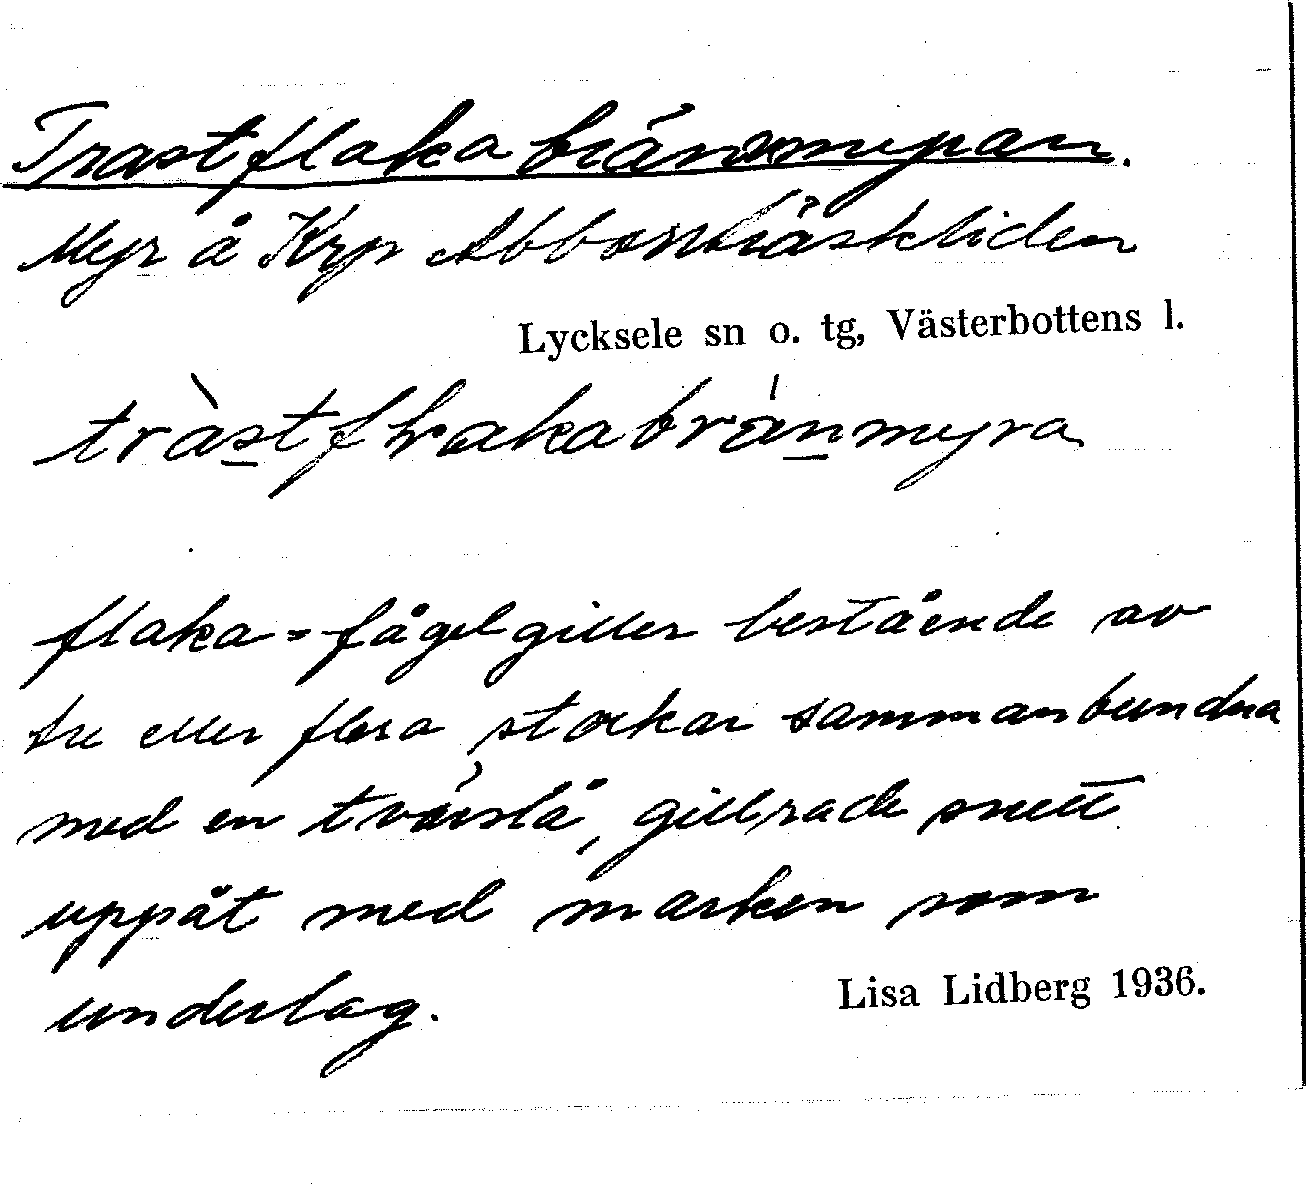 Trastflakabränsmyran.
Myr å Krp Abborrträskliden
Lycksele sn o. tg, Västerbottens l.
tràstflakabránmyra
flaka = fågelgiller bestående av
tre eller flera stockar sammanbundna
med en tvärslå, gillrade snett
uppåt med marken som
underlag.
Lisa Lidberg 1936.